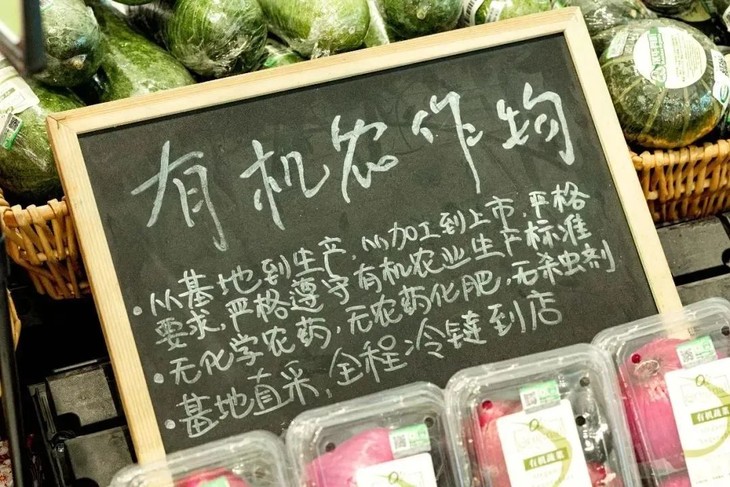 有机农作物
·从基地到生产,从加工到上市,严格
要求,严格遵守有机农业生产标准
·无化学农药,无农药化肥,无杀虫剂
·基地直采,全程冷链到店
有机蔬菜
有机蔬菜
有机蔬菜